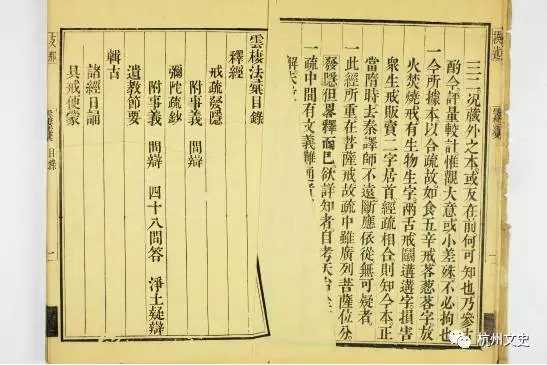 三二况藏外之本或反在前何可知也乃參
酌今詳量較計惟觀大意或小差殊不必拘也
一今所據本以合疏故如食五辛戒茖葱茖字放
火焚燒戒有生物生字兩舌戒鬪遘遘字損害
衆生戒販賣二字居首經疏相合則知今本正
當隋時去秦譯師不遠斷應依從無可疑者
一此經所重在菩薩戒故疏中雖廣列菩薩位分
發隱但畧釋而已欲詳知者自考天台
一疏中間有文義難通者
解
雲棲法彙目錄
釋經
戒疏發隱
附事義 問辯
彌陀疏鈔
附事義 問辯 四十八問答 淨土疑辯
遺教節要
輯古
諸經日誦
具戒便蒙
目錄
一
杭州文史